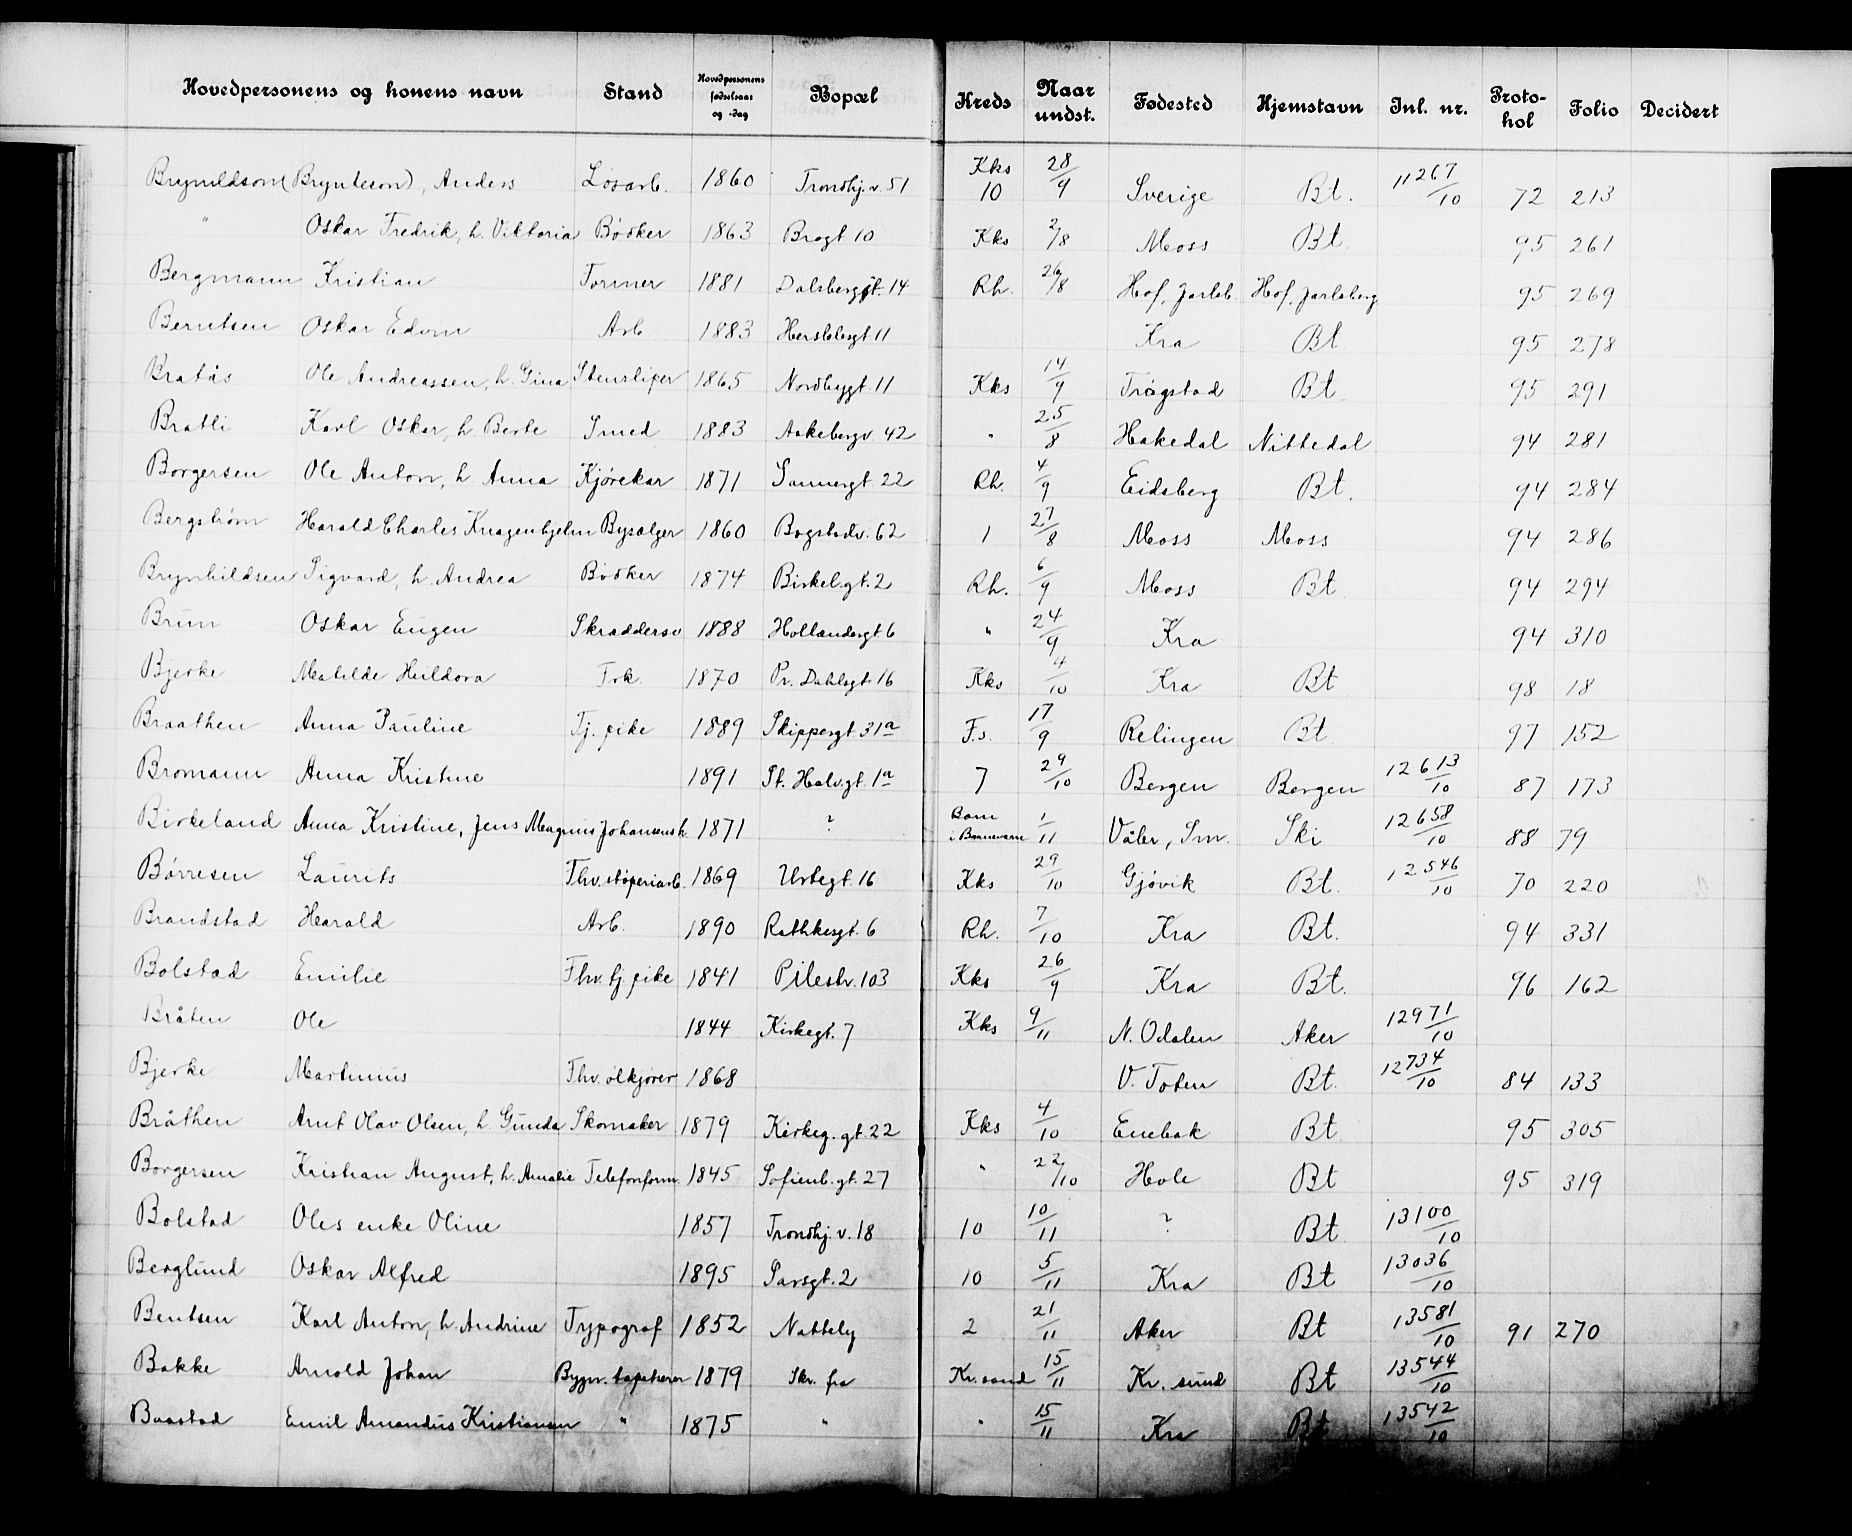 Hovedpersonens og konens navn Stand Hovedpersonens fødselsaar og -dag Bopæl Kreds Naar undst. Fødested Hjemstavn Inl. nr. Protokol Folio Decidert
Brynildson (Brynteson), Anders Løsarb. 1860 Trondhj.v. 51 Kks 10 28/9 Sverige Bt. 11267/10 72 213
" Oskar Fredrik, h. Viktoria Bödker 1863 Brogt 10 Kks 2/8 Moss Bt. 95 261
Bergmann Kristian Former 1881 Dalsberggt. 14 Rh. 26/8 Hof, Jarlsb. Hof, Jarlsberg 95 269
Berntsen Oskar Edvin Arb 1883 Herslebsgt 11 Kra Bt 95 278
Bratås Ole Andreassen, h. Gina Stensliper 1865 Nordbygt 11 Kks 14/9 Trøgstad Bt. 95 291
Bratli Karl Oskar, h Berte Smed 1883 Aakebergv. 42 " 25/8 Hakedal Nittedal 94 281
Borgersen Ole Anton, h Anna Kjørekar 1871 Sannergt 22 Rh. 4/9 Eidsberg Bt. 94 284
Bergstrøm Harald Charles Knagenhjelm Bysælger 1860 Bogstadv. 62 1 27/8 Moss Moss 94 286
Brynhildsen Sigvard, h. Andrea Bödker 1874 Birkel.gt. 2 Rh. 6/9 Moss Bt 94 294
Brun Oskar Eugen Skräddersv 1888 Hollendergt 6 " 24/9 Kra 94 310
Bjerke Matilde Huldora Frk. 1870 Pr. Dahlsgt 16 Kks 4/10 Kra Bt 98 18
Braathen Anna Pauline Tj. pike 1889 Skippergt 31a F.s. 17/9 Relingen Bt 97 152
Bromann Anna Kristine 1891 St. Halv.gt. 1a 7 29/10 Bergen Bergen 12613/10 87 173
Birkeland Anna Kristine, Jens Magnus Johansens h. 1871 ? Barn i Barnevern 1/11 Våler, Sm. Ski 12658/10 88 79
Børresen Laurits Fhv. støperiarb. 1869 Urtegt. 16 Kks 29/10 Gjøvik Bt. 12546/10 70 220
Brandstad Harald Arb. 1890 Rathkesgt. 6 Rh. 7/10 Kra Bt. 94 331
Bolstad Emilie Fhv. tj. pike 1841 Pilestr. 103 Kks 26/9 Kra Bt. 96 162
Bråten Ole 1844 Kirkegt. 7 Kks 9/11 N. Odalen Aker 12971/10
Bjerke Martinius Fhv. ølkjører 1868 V. Toten Bt. 12734/10 84 133
Bråthen Arnt Olav Olsen, h. Gunda Skomaker 1879 Kirkeg. gt. 22 Kks 4/10 Enebak Bt. 95 305
Borgersen Kristian August, h. Amalie Telefonform. 1845 Sofienb. gt. 27 " 22/10 Hole Bt 95 319
Bolstad Oles enke Oline 1857 Trondhj. v. 18 10 10/11 ? Bt 13100/10
Berglund Oskar Alfred 1895 Sarsgt. 2 10 5/11 Kra Bt 13036/10
Bentsen Karl Anton, h. Andrine Typograf 1852 Nætteby 2 21/11 Aker Bt 13581/10 91 270
Bakke Arnold Johan Bygn. tapetserer 1879 Skr. fra Kr. sand 15/11 Kr. sund Bt 13544/10
Baastad Emil Amandus Kristiansen " 1875 " " 15/11 Kra Bt 13542/10